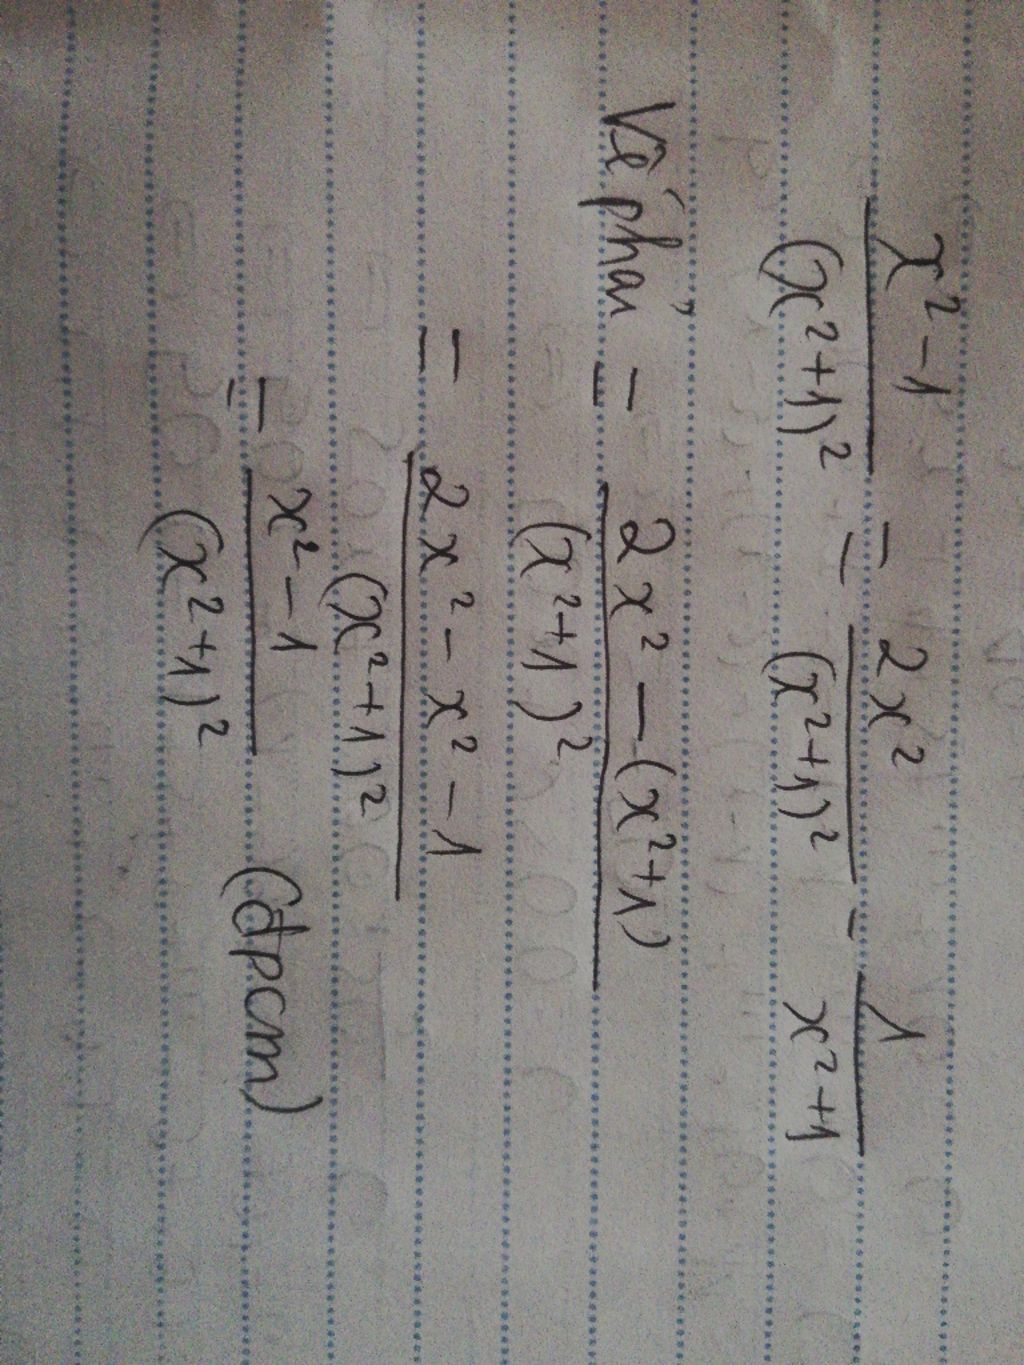 x² - 1 / (x² + 1)² = 2x² / (x² + 1)² - 1 / x² + 1
Vế phải = 2x² - (x² + 1) / (x² + 1)²
= 2x² - x² - 1 / (x² + 1)²
= x² - 1 / (x² + 1)² (đpcm)